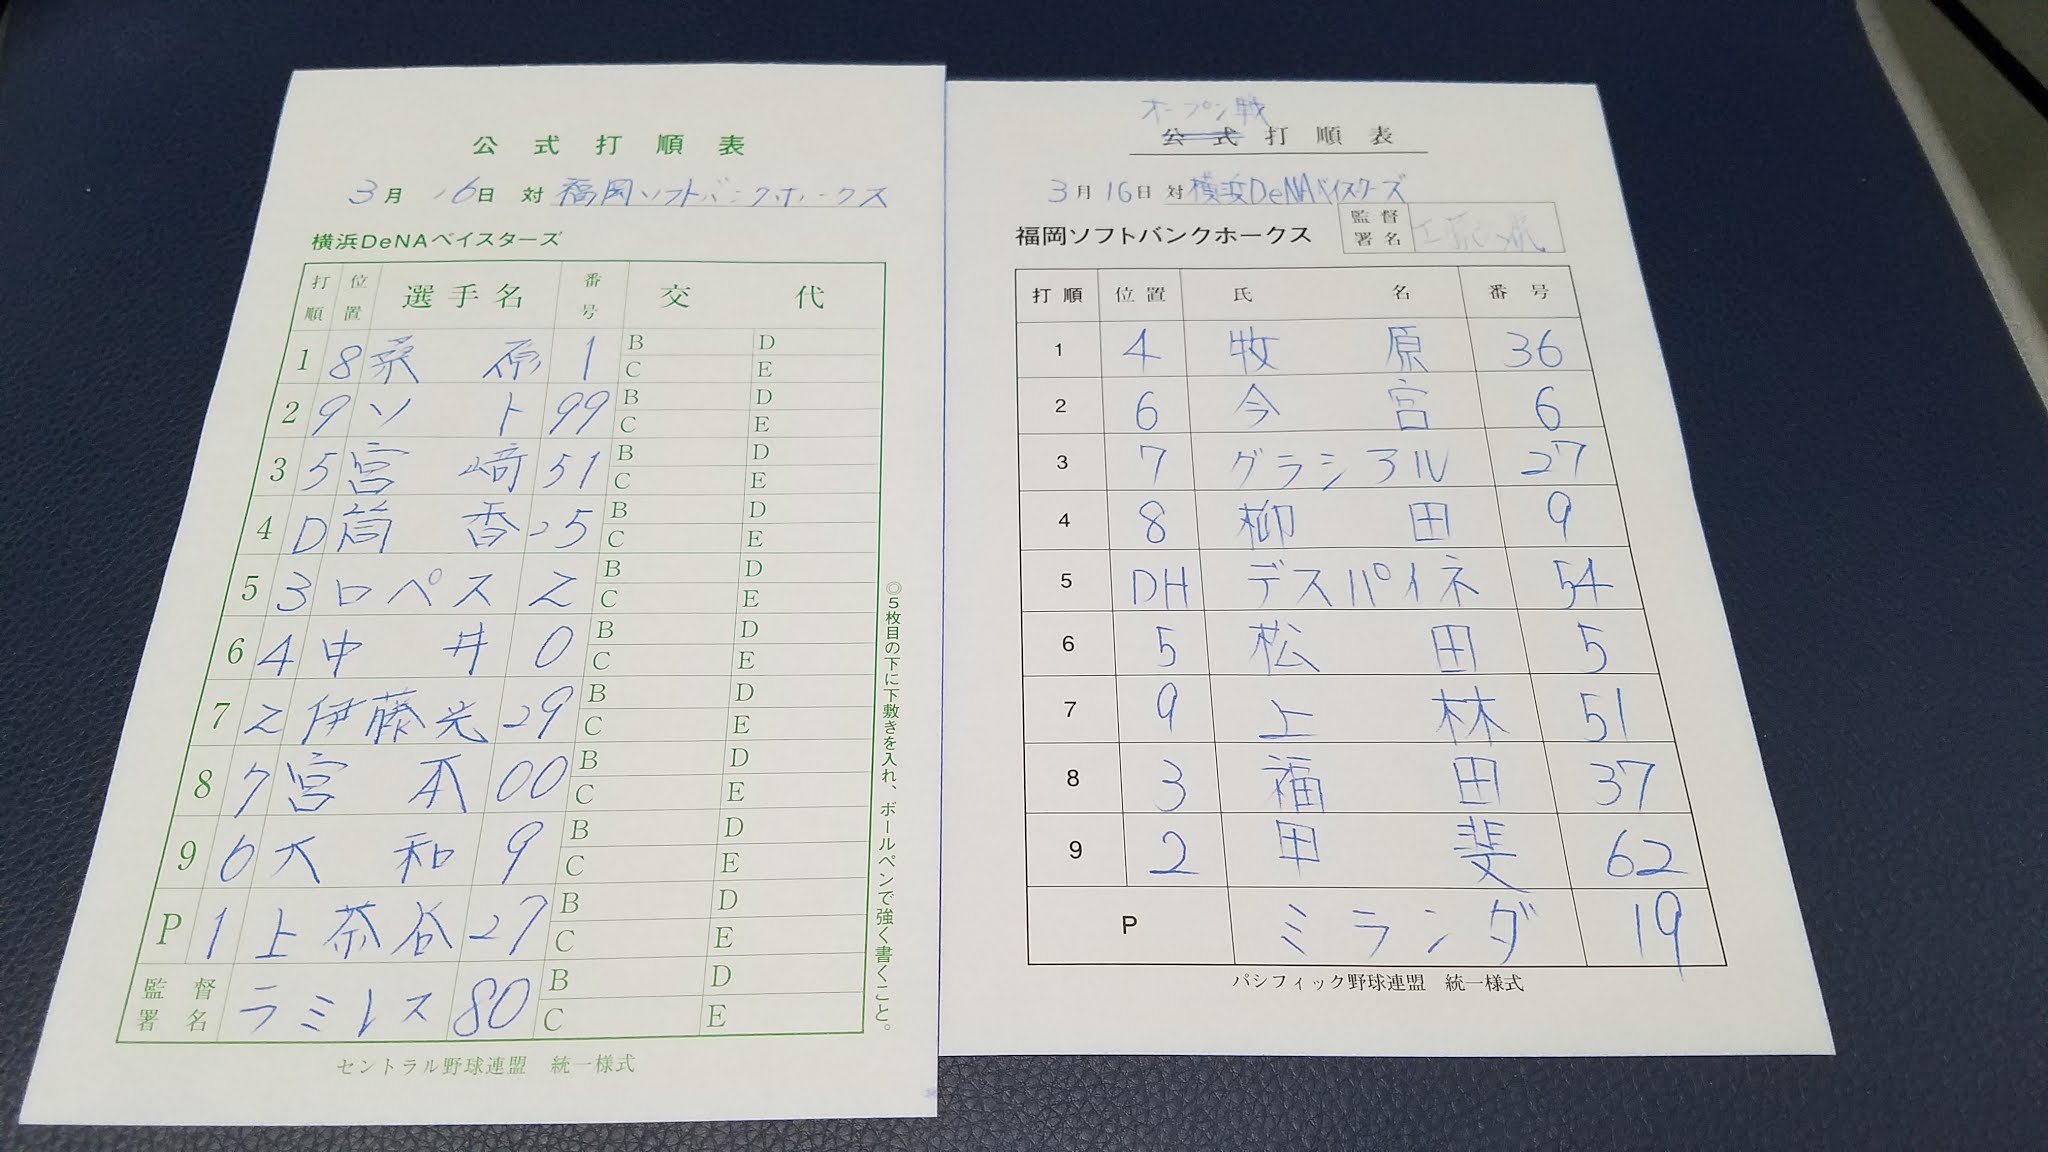 公式打順表
3月 16日 対 福岡ソフトバンクホークス
横浜DeNAベイスターズ
打順 位置 選手名 番号 交代
1 8 桑原 1 B D
C E
2 9 ソト 99 B D
C E
3 5 宮﨑 51 B D
C E
4 D 筒香 25 B D
C E
5 3 ロペス 2 B D
C E
6 4 中井 0 B D
C E
7 2 伊藤光 29 B D
C E
8 7 宮本 00 B D
C E
9 6 大和 9 B D
C E
P 1 上茶谷 27 B D
C E
監督署名 ラミレス 80 B D
C E
◎5枚目の下に下敷きを入れ、ボールペンで強く書くこと。
セントラル野球連盟 統一様式
オープン戦
公式打順表
3月16日 対 横浜DeNAベイスターズ
福岡ソフトバンクホークス 監督署名
打順 位置 氏名 番号
1 4 牧原 36
2 6 今宮 6
3 7 グラシアル 27
4 8 柳田 9
5 DH デスパイネ 54
6 5 松田 5
7 9 上林 51
8 3 福田 37
9 2 甲斐 62
P ミランダ 19
パシフィック野球連盟 統一様式